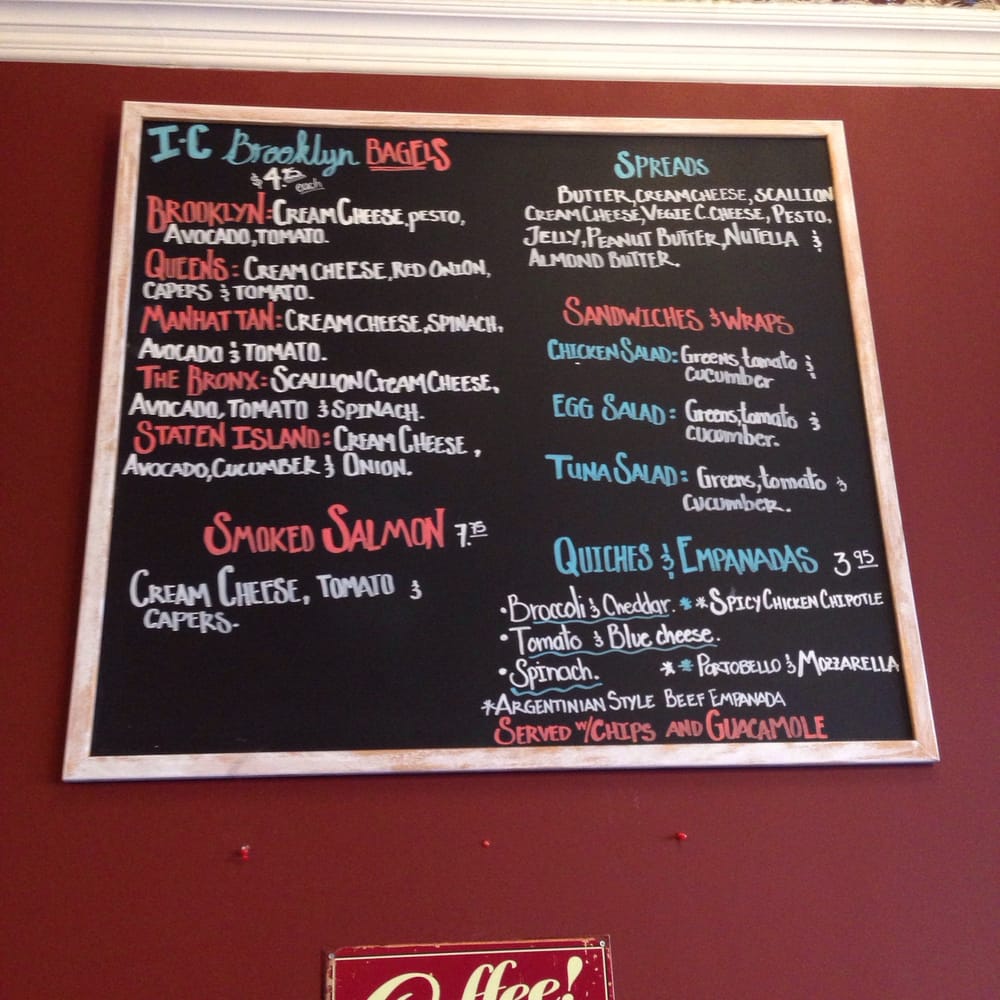 I-C Brooklyn BAGELS
$4.75 each
BROOKLYN: CREAM CHEESE, PESTO,
AVOCADO, TOMATO.
QUEENS: CREAM CHEESE, RED ONION,
CAPERS & TOMATO.
MANHATTAN: CREAM CHEESE, SPINACH,
AVOCADO & TOMATO.
THE BRONX: SCALLION CREAM CHEESE,
AVOCADO, TOMATO & SPINACH.
STATEN ISLAND: CREAM CHEESE,
AVOCADO, CUCUMBER & ONION.
SMOKED SALMON 7.75
CREAM CHEESE, TOMATO &
CAPERS.
SPREADS
BUTTER, CREAMCHEESE, SCALLION
CREAM CHEESE, VEGIE C. CHEESE, PESTO,
JELLY, PEANUT BUTTER, NUTELLA &
ALMOND BUTTER.
SANDWICHES & WRAPS
CHICKEN SALAD: Greens, tomato &
cucumber
EGG SALAD: Greens, tomato &
cucumber.
TUNA SALAD: Greens, tomato &
cucumber.
QUICHES & EMPANADAS 3.95
• Broccoli & Cheddar. * * SPICY CHICKEN CHIPOTLE
• Tomato & Blue cheese.
• Spinach. * * PORTOBELLO & MOZZARELLA
* ARGENTINIAN STYLE BEEF EMPANADA
SERVED W/ CHIPS AND GUACAMOLE
Coffee!